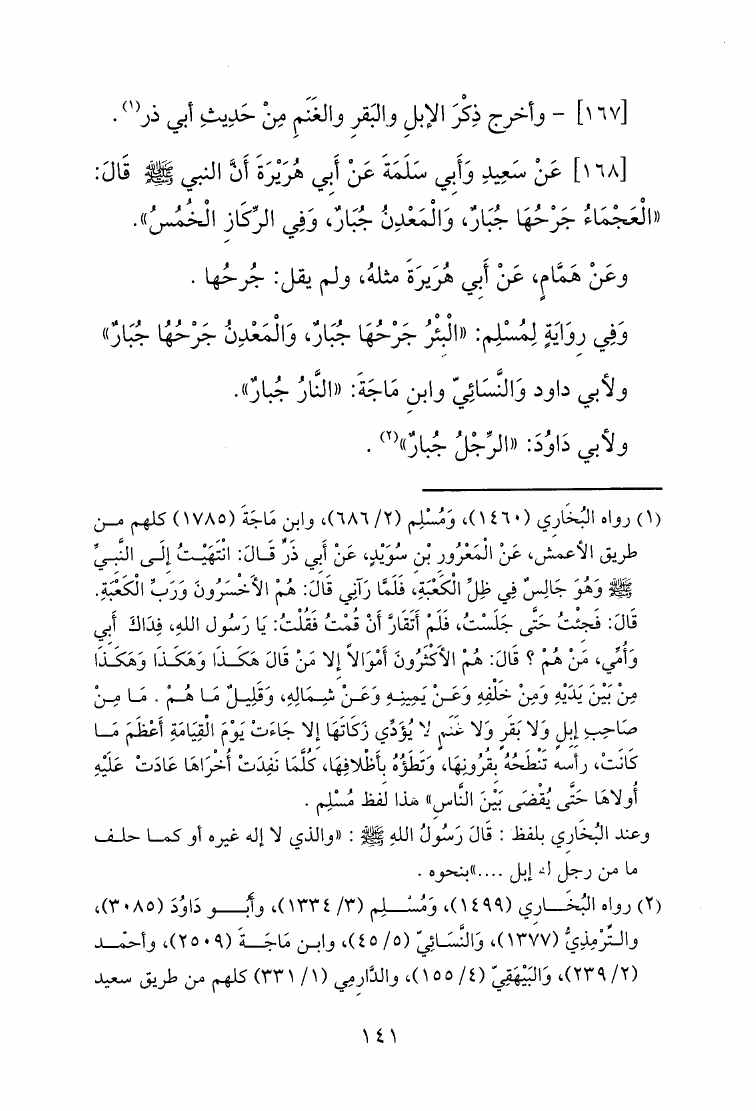 [١٦٧] - وأخرج ذِكْرَ الإبلِ والبَقرِ والغَنَمِ مِنْ حَدِيثِ أبي ذر(١).
[١٦٨] عَنْ سَعِيدِ وَأَبِي سَلَمَةَ عَنْ أَبِي هُرَيْرَةَ أَنَّ النبي ﷺ قَالَ:
«الْعَجْمَاءُ جَرْحُهَا جُبَارٌ، وَالْمَعْدِنُ جُبَارٌ، وَفِي الرِّكَازِ الْخُمُسُ».
وعَنْ هَمَّامٍ، عَنْ أَبِي هُرَيرَةَ مثلهُ، ولم يقل: جُرحُها .
وَفِي رِوَايَةٍ لِمُسْلِم: «الْبَئْرُ جَرْحُهَا جُبَارٌ، وَالْمَعْدِنُ جَرْحُهُا جُبَارٌ»
ولأبي داود وَالنَّسَائِيّ وابنِ مَاجَةَ: «النَّارُ جُبارٌ».
ولأبي دَاوُدَ: «الرِّجْلُ جُبارٌ»(٢) .
(١) رواه البُخَاري (١٤٦٠)، وَمُسْلِم (٢/ ٦٨٦)، وابن مَاجَةَ (١٧٨٥) كلهم من
طريق الأعمش، عَنْ الْمَعْرُورِ بْنِ سُوَيْدٍ، عَنْ أبي ذَرٍّ قَالَ: انْتَهَيْتُ إِلَى النَّبِيِّ
ﷺ وَهُوَ جَالِسٌ فِي ظِلِّ الْكَعْبَةِ، فَلَمَّا رَآنِي قَالَ: هُمْ الأَخْسَرُونَ وَرَبِّ الْكَعْبَةِ.
قَالَ: فَجِئْتُ حَتَّى جَلَسْتُ، فَلَمْ أَتَقَارَّ أَنْ قُمْتُ فَقُلْتُ: يَا رَسُول الله، فِدَاكَ أَبي
وَأُمِّي، مَنْ هُمْ ؟ قَالَ: هُمْ الأَكْثَرُونَ أَمْوَالاً إلا مَنْ قَالَ هَكَذَا وَهَكَذَا وَهَكَذَا
مِنْ بَيْنَ يَدَيْهِ وَمِنْ خَلْفِهِ وَعَنْ يَمِينِهِ وَعَنْ شِمَالِهِ، وَقَلِيلٌ مَا هُمْ . مَا مِنْ
صَاحِبِ إبِلٍ وَلا بَقَرٍ وَلا غَنَمٍ لا يُؤَدِّي زَكَاتَهَا إلا جَاءَتْ يَوْمَ الْقِيَامَةِ أَعْظَمَ مَا
كَانَتْ، رأسه تَنْطَحُهُ بِقُرُونِهَا، وَتَطَؤُهُ بأَظْلافِهَا، كُلَّمَا نَفِدَتْ أُخْرَاهَا عَادَتْ عَلَيْهِ
أُولاهَا حَتَّى يُقْضَى بَيْنَ النَّاسِ» هذا لفظ مُسْلِم .
وعند البُخَاري بلفظ : قَالَ رَسُولُ اللهِ ﷺ : «والذي لا إله غيره أو كما حلف
ما من رجل له إبل ....»بنحوه .
(٢) رواه البُخَاري (١٤٩٩)، وَمُسْلِم (٣/ ١٣٣٤)، وأَبُو دَاوُدَ (٣٠٨٥)،
والتِّرْمِذِيُّ (١٣٧٧)، وَالنَّسَائِيّ (٥/ ٤٥)، وابن مَاجَةَ (٢٥٠٩)، وأَحْمَد
(٢/ ٢٣٩)، وَالبَيْهَقِيّ (٤/ ١٥٥)، والدَّارِمِي (١/ ٣٣١) كلهم من طريق سعيد
١٤١